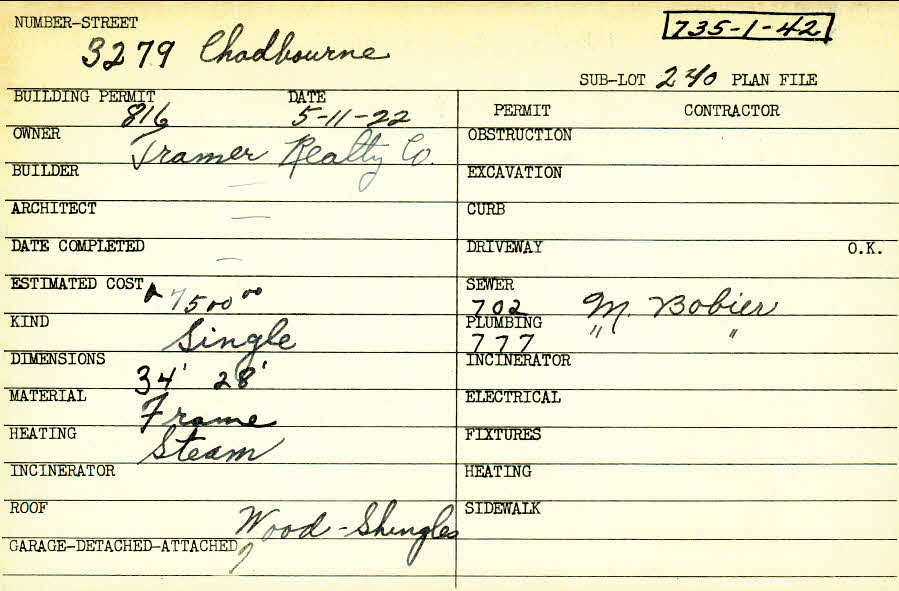 NUMBER-STREET
3279 Chadbourne
735-1-42
SUB-LOT 240 PLAN FILE
BUILDING PERMIT DATE
816 5-11-22
OWNER
Tramer Realty Co.
BUILDER
—
ARCHITECT
—
DATE COMPLETED
—
ESTIMATED COST
7500 00
KIND
Single
DIMENSIONS
34' 28'
MATERIAL
Frame
HEATING
Steam
INCINERATOR
ROOF
Wood-Shingles
GARAGE-DETACHED-ATTACHED
PERMIT CONTRACTOR
OBSTRUCTION
EXCAVATION
CURB
DRIVEWAY O.K.
SEWER
702 M. Bobier
PLUMBING
777 " "
INCINERATOR
ELECTRICAL
FIXTURES
HEATING
SIDEWALK